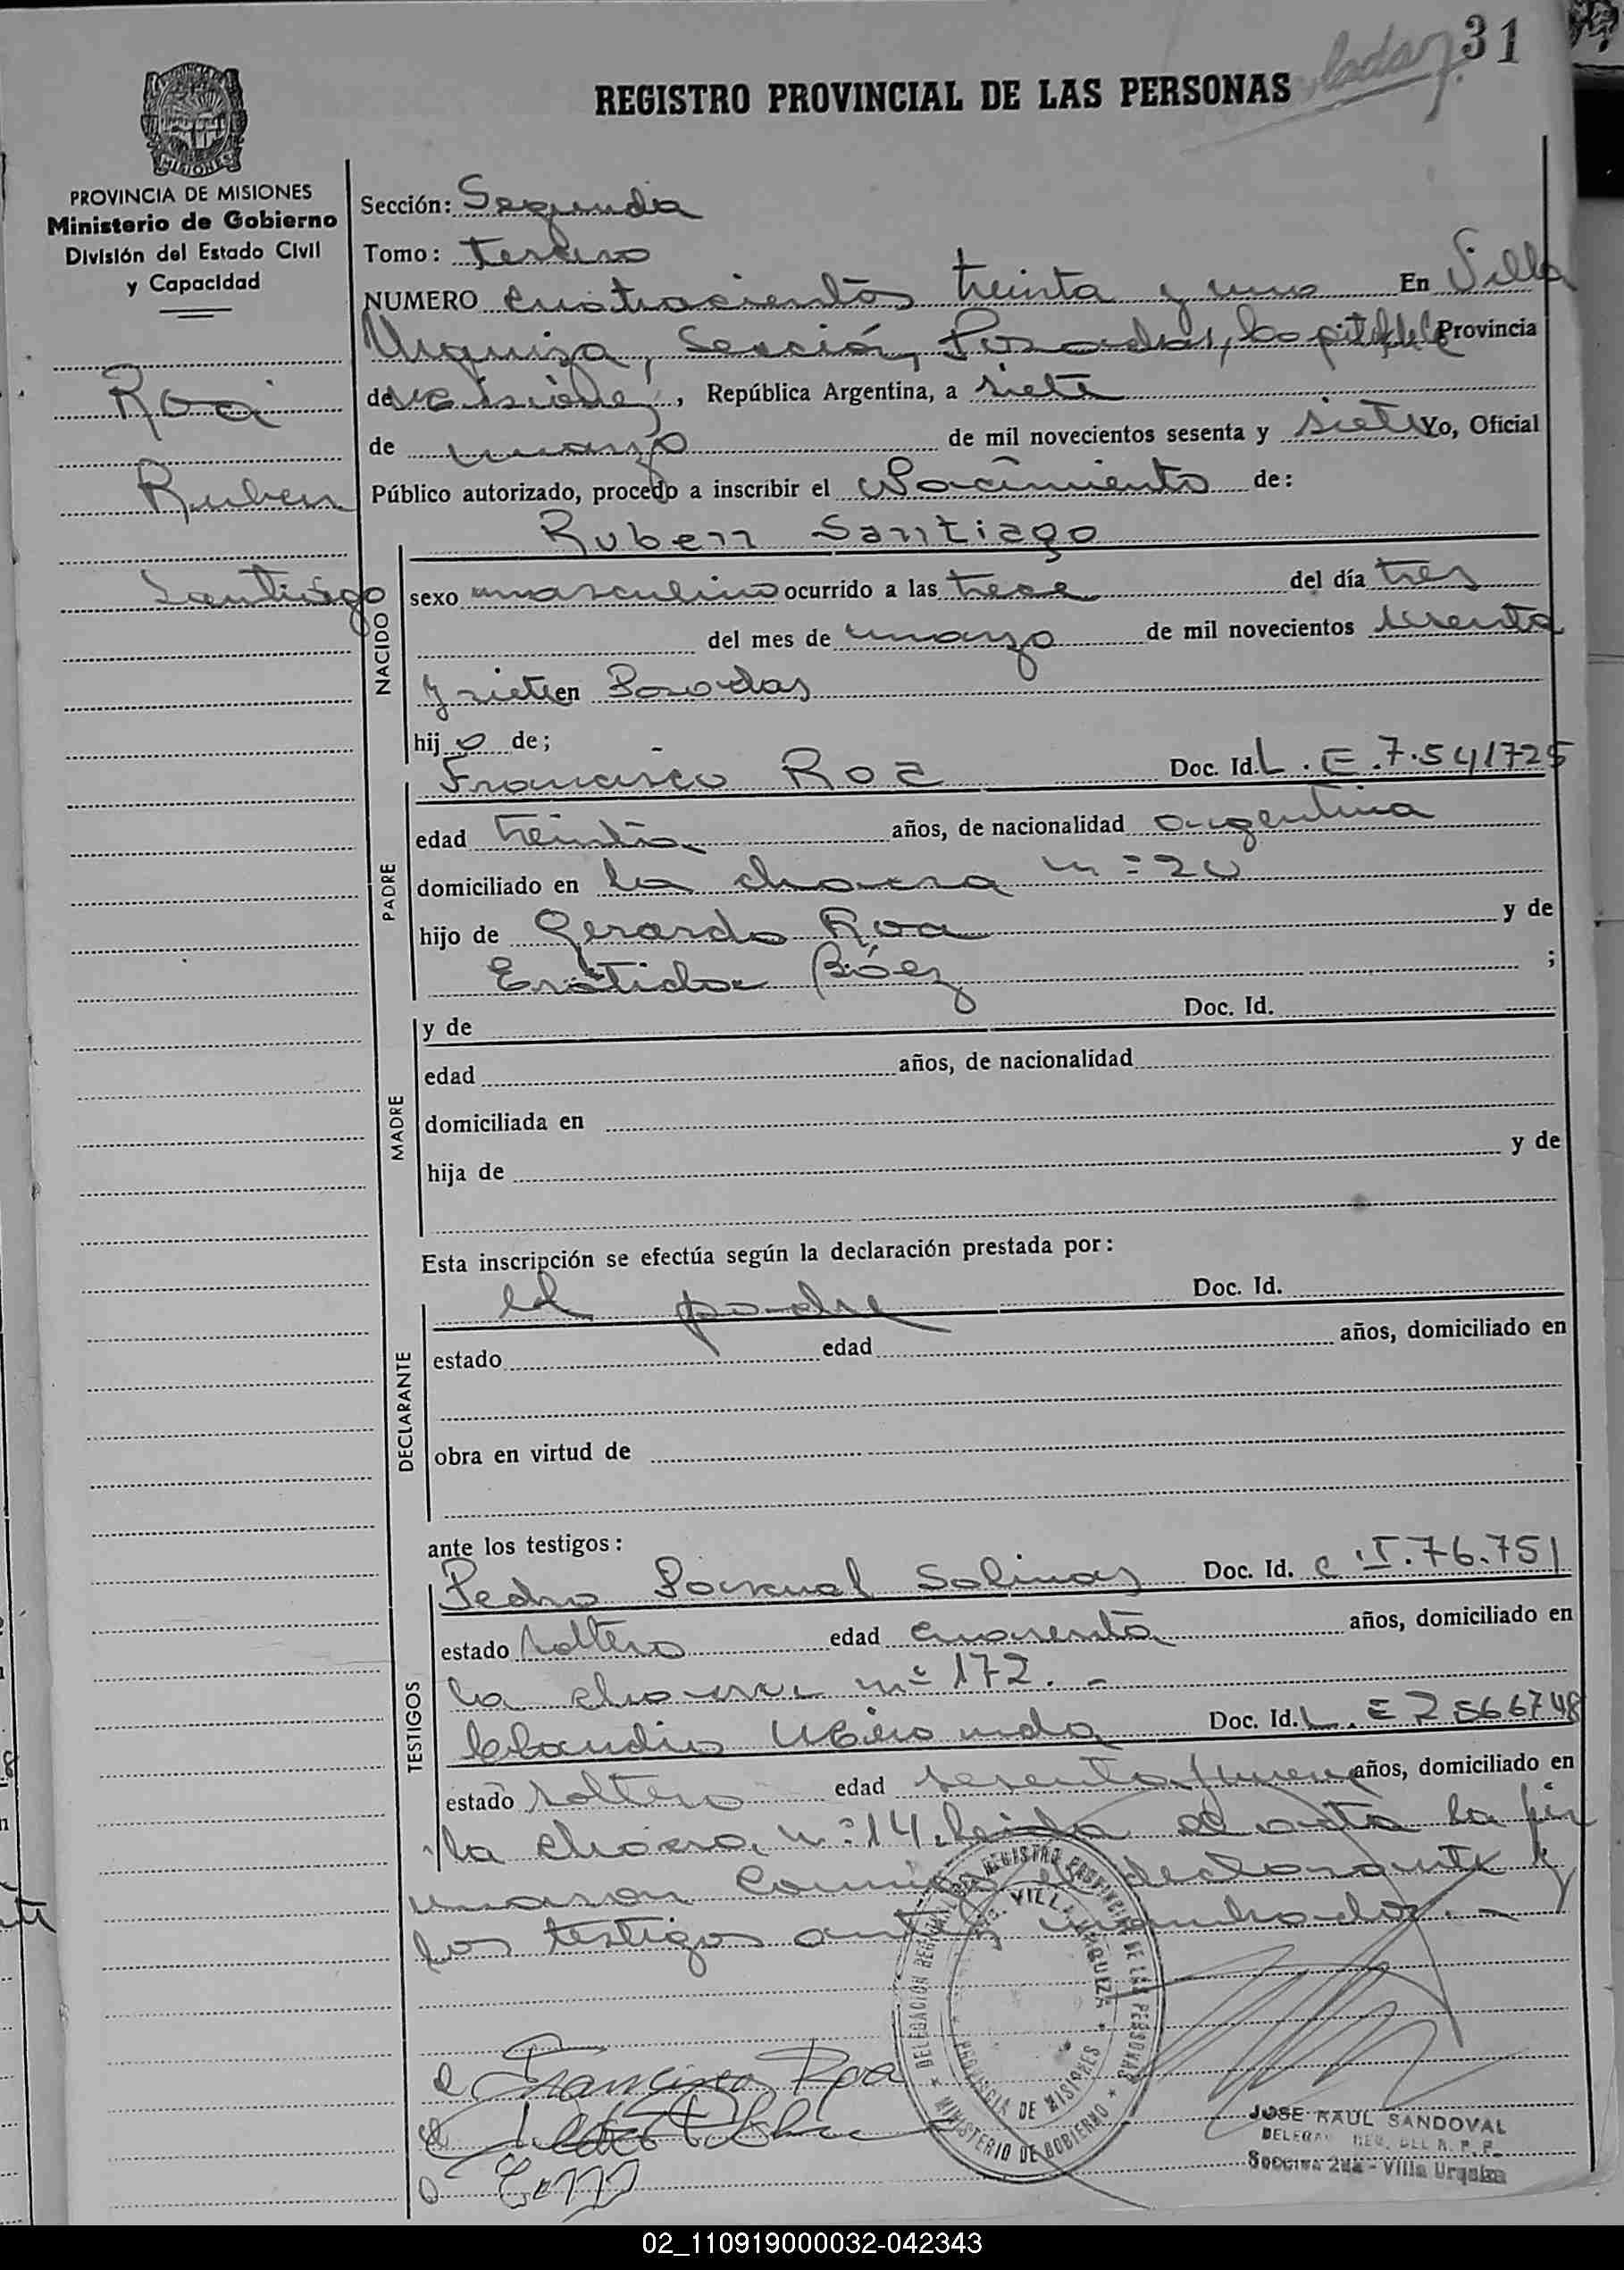 31
REGISTRO PROVINCIAL DE LAS PERSONAS
MISIONES
PROVINCIA DE MISIONES
Ministerio de Gobierno
División del Estado Civil
y Capacidad
Roa
Ruben
Santiago
Sección: Segunda
Tomo: Tercero
NUMERO cuatrocientos treinta y uno En Villa
Urquiza, Sección, Posadas, Capital de la Provincia
de Misiones, República Argentina, a siete
de marzo de mil novecientos sesenta y siete Yo, Oficial
Público autorizado, procedo a inscribir el Nacimiento de:
Ruben Santiago
NACIDO
sexo masculino ocurrido a las trece del día tres
del mes de marzo de mil novecientos sesenta
y siete en Posadas
hijo de;
PADRE
Francisco Roa Doc. Id. L.E.7.541725
edad treinta años, de nacionalidad argentina
domiciliado en la chacra n=20
hijo de Gerardo Roa y de
Báez ;
MADRE
y de Doc. Id.
edad años, de nacionalidad
domiciliada en
hija de y de
Esta inscripción se efectúa según la declaración prestada por:
DECLARANTE
el padre Doc. Id.
estado edad años, domiciliado en
obra en virtud de
ante los testigos:
TESTIGOS
Pedro Pascual Salinas Doc. Id. C.I.76.751
estado soltero edad cuarenta años, domiciliado en
la chacra nº 172.-
Claudio Miranda Doc. Id. L.E 2566748
estado soltero edad sesenta y nueve años, domiciliado en
la chacra nº 14. Leida el acta la fir
maron conmigo el declarante y
los testigos antes mencionados.-
DELEGACION REGISTRO PROVINCIAL DE LAS PERSONAS
VILLA URQUIZA
PROVINCIA DE MISIONES
MINISTERIO DE GOBIERNO
Francisco Roa
JOSE RAUL SANDOVAL
DELEGADO REG. DEL R. P. P.
Seccion 2da - Villa Urquiza
02_110919000032-042343